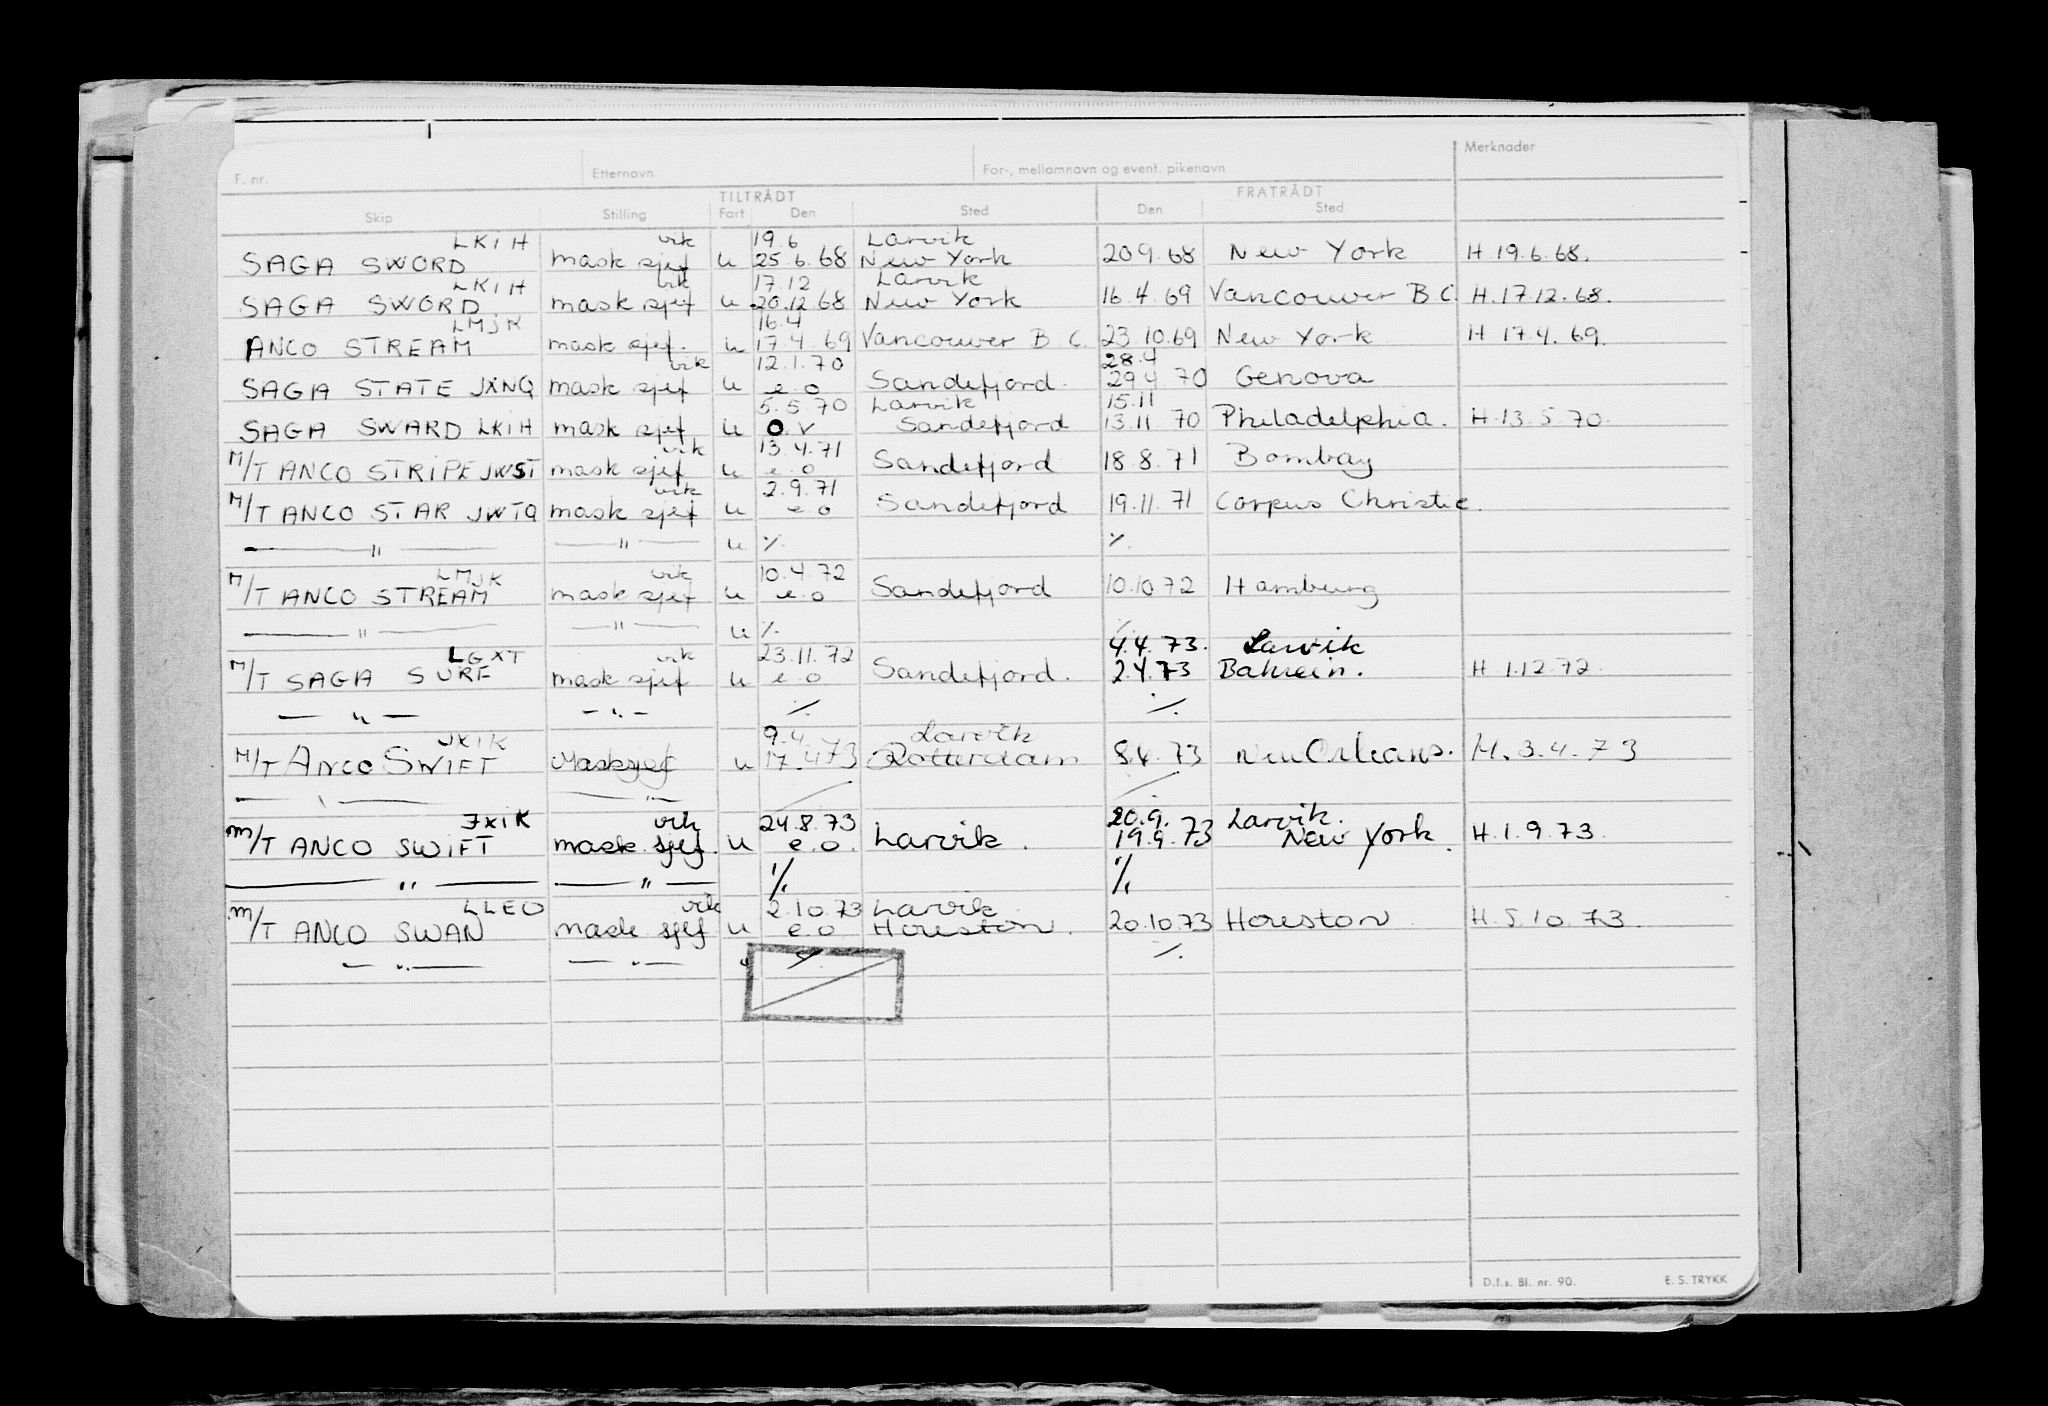 F. nr. Etternavn For-, mellomnavn og event. pikenavn Merknader
TILTRÅDT FRATRÅDT
Skip Stilling Fart Den Sted Den Sted
LKIH vik 19.6 Larvik
SAGA SWORD mask sjef u 25.6.68 New York 20 9.68 New York H 19.6.68.
LKIH vik 17.12 Larvik
SAGA SWORD mask sjef u 20.12 68 New York 16.4.69 Vancouver B C. H.17.12.68.
LMJK 16.4
ANCO STREAM mask sjef. u 17.4.69 Vancouver B C. 23.10.69 New York H 17.4.69.
vik 12.1.70 28.4
SAGA STATE JXNQ mask sjef u e o Sandefjord. 29.4.70 Genova
5.5.70 Larvik 15.11
SAGA SWARD LKIH mask sjef u O.V Sandefjord 13.11.70 Philadelphia. H.13.5.70.
vik 13.4.71
M/T ANCO STRIPE JWST mask sjef u e o Sandefjord 18.8.71 Bombay
vik 2.9.71
M/T ANCO STAR JWTQ mask sjef u e o Sandefjord 19.11.71 Corpus Christie.
— " — — " — u ·/. ·/.
LMJK vik 10.4.72
M/T ANCO STREAM mask sjef u e o Sandefjord 10.10.72 Hamburg
— " — — " — u ·/. ·/.
4.4.73. Larvik
LGXT vik 23.11.72
M/T SAGA SURF mask sjef u e o Sandefjord. 2.4.73 Bahrein. H 1.12.72.
— " — — " — ·/. ·/.
JXIK 9.4. Larvik
M/T ANCO SWIFT Masksjef u 17.4.73 Rotterdam 8.4.73 New Orleans. H.3.4.73
— " — — " — ·/. ·/.
JXIK vik 24.8.73 20.9. Larvik.
M/T ANCO SWIFT mask. sjef. u e.o. Larvik. 19.9.73 New York. H.1.9.73.
— " — — " — ·/. ·/.
LLEO vik 2.10.73 Larvik
M/T ANCO SWAN mask sjef u e.o Houston. 20.10.73 Houston H.5.10.73.
— " — — " — u ·/. ·/.
D.f.s. Bl. nr. 90. E. S. TRYKK